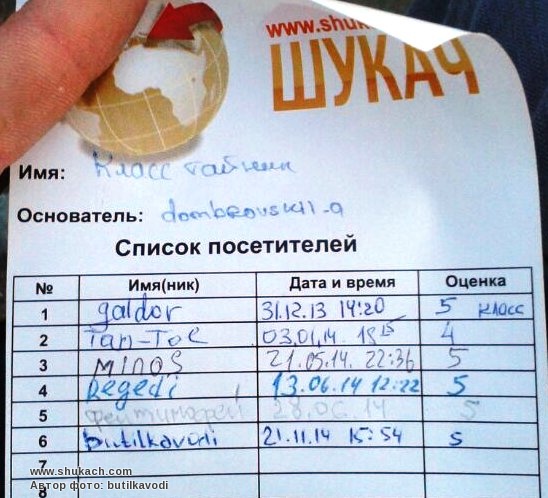 www.shuk
ШУКАЧ
Имя: Класс тайник
Основатель: dombrovskii-a
Список посетителей
№ Имя(ник) Дата и время Оценка
1 galdor 31.12.13 14:20 5 класс
2 Tan-Tol 03.01.14 18 15 4
3 minos 21.05.14. 22:36 5
4 Pegedi 13.06.14 12:22 5
5 28.06.14 5
6 butilkavodi 21.11.14 15:54 5
7
8
www.shukach.com
Автор фото: butilkavodi